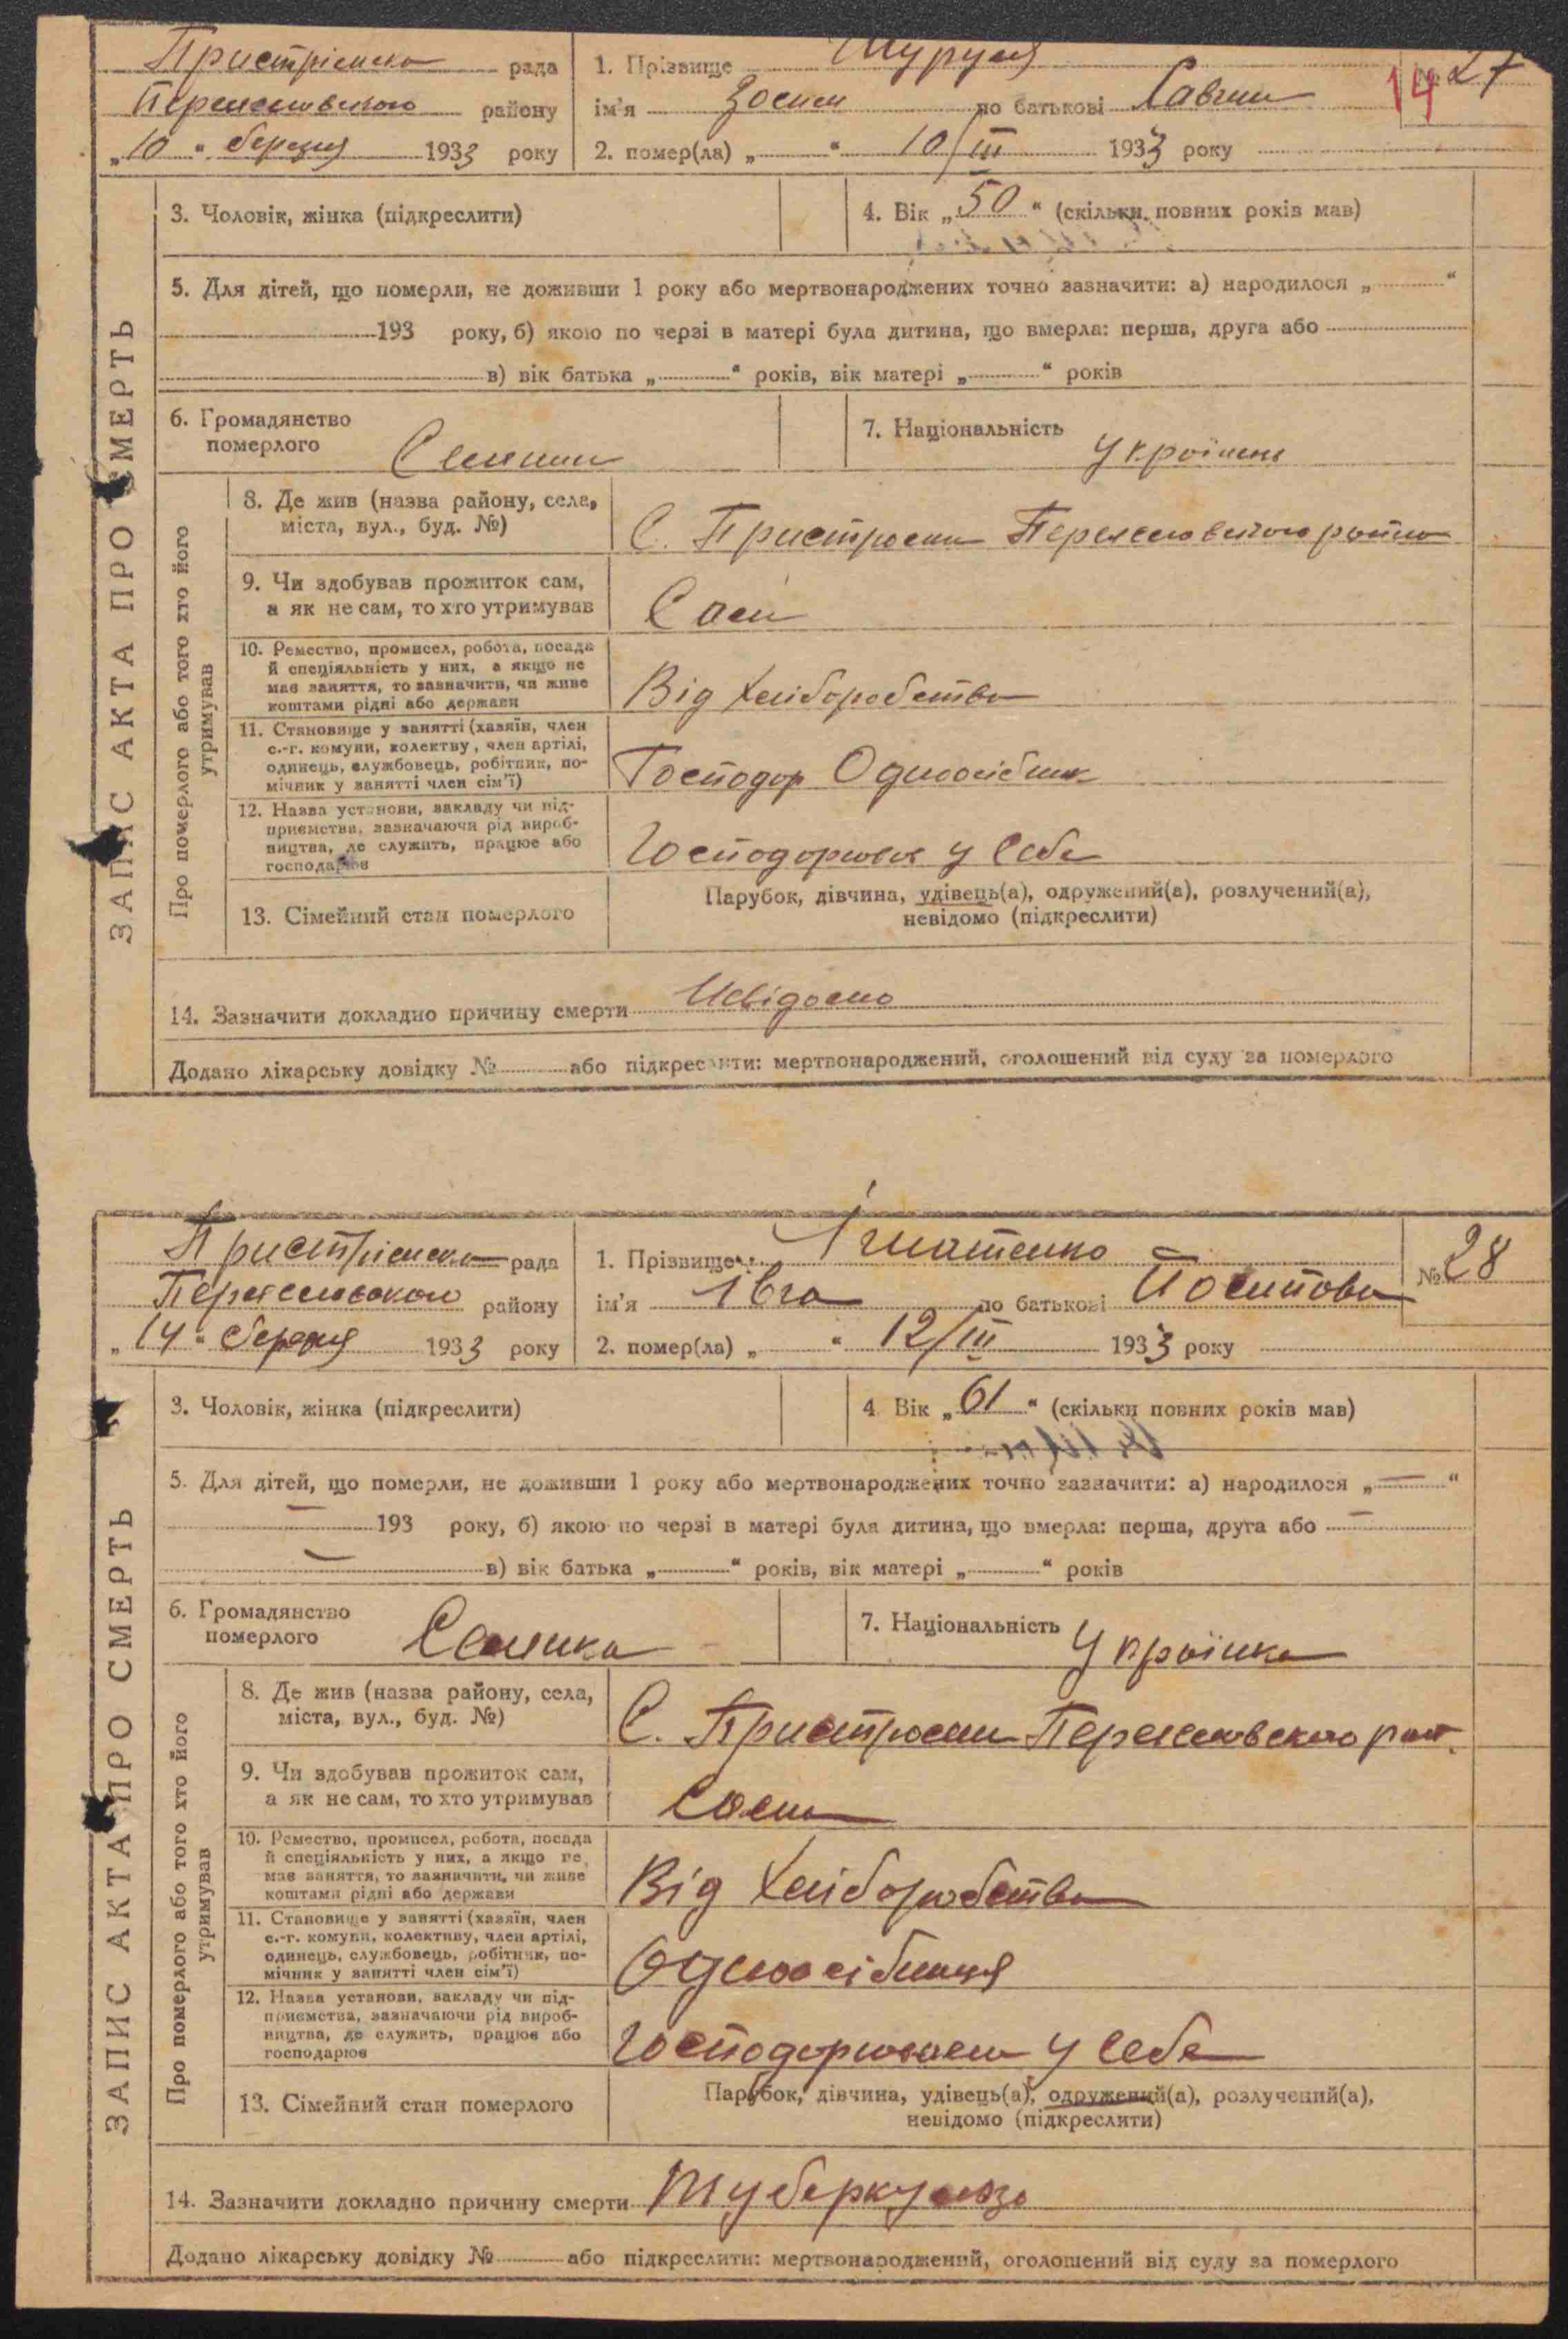 Пристрімська рада
1. Прізвище Шуруля
14 27
Переяславського району
ім'я Зосим по батькові Савчин
„10“ березня 1933 року
2. помер(ла) „ “ 10/III 1933 року
3. Чоловік, жінка (підкреслити)
4. Вік „50“ (скільки повних років мав)
5. Для дітей, що померли, не доживши 1 року або мертвонароджених точно зазначити: а) народилося „ “
193 року, б) якою по черзі в матері була дитина, що вмерла: перша, друга або
в) вік батька „ “ років, вік матері „ “ років
6. Громадянство
померлого Селянин
7. Національність Українець
ЗАПИС АКТА ПРО СМЕРТЬ
Про померлого або того хто його
утримував
8. Де жив (назва району, села,
міста, вул., буд. №)
С. Пристроми Переяславського району
9. Чи здобував прожиток сам,
а як не сам, то хто утримував
Сам
10. Ремество, промисел, робота, посада
й спеціяльність у них, а якщо не
має заняття, то зазначити, чи живе
коштами рідні або держави
Від хліборобства
11. Становище у занятті (хазяїн, член
с.-г. комуни, колективу, член артілі,
одинець, службовець, робітник, по-
мічник у занятті член сім'ї)
Господар Одноосібник
12. Назва установи, закладу чи під-
приємства, зазначаючи рід вироб-
ництва, де служить, працює або
господарює
Господорював у себе
13. Сімейний стан померлого
Парубок, дівчина, удівець(а), одружений(а), розлучений(а),
невідомо (підкреслити)
14. Зазначити докладно причину смерти Невідомо
Додано лікарську довідку № або підкреслити: мертвонароджений, оголошений від суду за померлого
Пристрімська рада
1. Прізвище Ігнатенко
№ 28
Переяславського району
ім'я Івга по батькові Йосипова
„14“ березня 1933 року
2. помер(ла) „ “ 12/III 1933 року
3. Чоловік, жінка (підкреслити)
4 Вік „61“ (скільки повних років мав)
5. Для дітей, що померли, не доживши 1 року або мертвонароджених точно зазначити: а) народилося „—“
— 193 року, б) якою по черзі в матері була дитина, що вмерла: перша, друга або —
— в) вік батька „ “ років, вік матері „ “ років
6. Громадянство
померлого Селянка
7. Національність Українка
ЗАПИС АКТА ПРО СМЕРТЬ
Про померлого або того хто його
утримував
8. Де жив (назва району, села,
міста, вул., буд. №)
С. Пристроми Переяславського рай.
9. Чи здобував прожиток сам,
а як не сам, то хто утримував
Сама
10. Ремество, промисел, робота, посада
й спеціяльність у них, а якщо не
має заняття, то зазначити, чи живе
коштами рідні або держави
Від хліборобства
11. Становище у занятті (хазяїн, член
с.-г. комуни, колективу, член артілі,
одинець, службовець, робітник, по-
мічник у занятті член сім'ї)
Одноосібниця
12. Назва установи, закладу чи під-
приємства, зазначаючи рід вироб-
ництва, де служить, працює або
господарює
Господорювала у себе
13. Сімейний стан померлого
Парубок, дівчина, удівець(а), одружений(а), розлучений(а),
невідомо (підкреслити)
14. Зазначити докладно причину смерти Туберкульоз
Додано лікарську довідку № або підкреслити: мертвонароджений, оголошений від суду за померлого